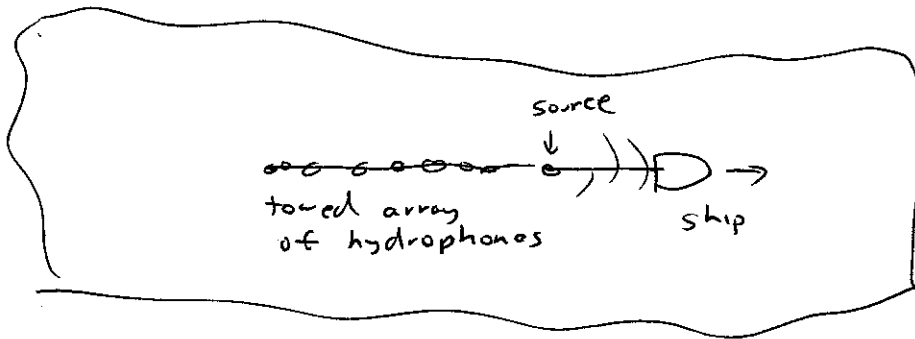 source
towed array
of hydrophones
ship